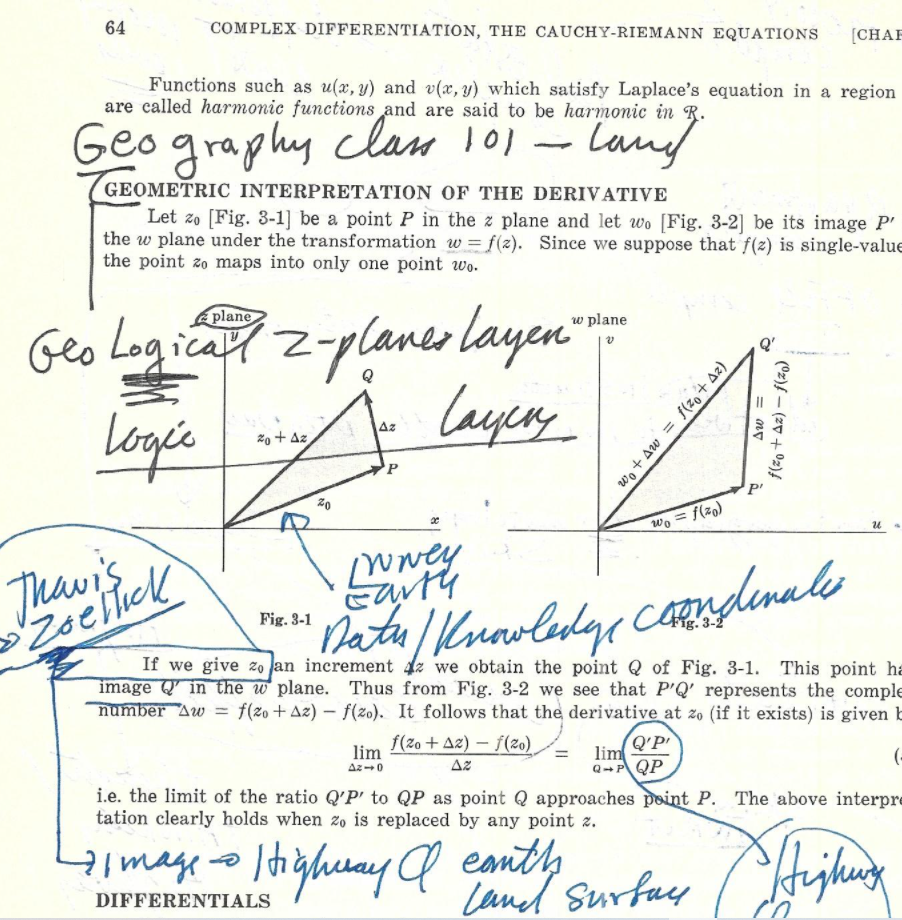 64 COMPLEX DIFFERENTIATION, THE CAUCHY-RIEMANN EQUATIONS [CHAP
Functions such as u(x, y) and v(x, y) which satisfy Laplace's equation in a region
are called harmonic functions and are said to be harmonic in ℛ.
Geography class 101 — Land
GEOMETRIC INTERPRETATION OF THE DERIVATIVE
Let z₀ [Fig. 3-1] be a point P in the z plane and let w₀ [Fig. 3-2] be its image P′
the w plane under the transformation w = f(z). Since we suppose that f(z) is single-value
the point z₀ maps into only one point w₀.
z plane
w plane
Geo Logical z-planes layers
y
v
Q
Q′
logic
layers
z₀ + Δz
Δz
P
z₀
x
w₀ + Δw = f(z₀ + Δz)
Δw =
f(z₀ + Δz) − f(z₀)
P′
w₀ = f(z₀)
u
Earth
Travis
Zoellick
Data/Knowledge coordinates
Fig. 3-1
Fig. 3-2
If we give z₀ an increment Δz we obtain the point Q of Fig. 3-1. This point ha
image Q′ in the w plane. Thus from Fig. 3-2 we see that P′Q′ represents the comple
number Δw = f(z₀ + Δz) − f(z₀). It follows that the derivative at z₀ (if it exists) is given b
lim Δz→0 f(z₀ + Δz) − f(z₀) / Δz = lim Q→P Q′P′ / QP (
i.e. the limit of the ratio Q′P′ to QP as point Q approaches point P. The above interpre
tation clearly holds when z₀ is replaced by any point z.
image → Highway Q earth
land surface
Highway
DIFFERENTIALS